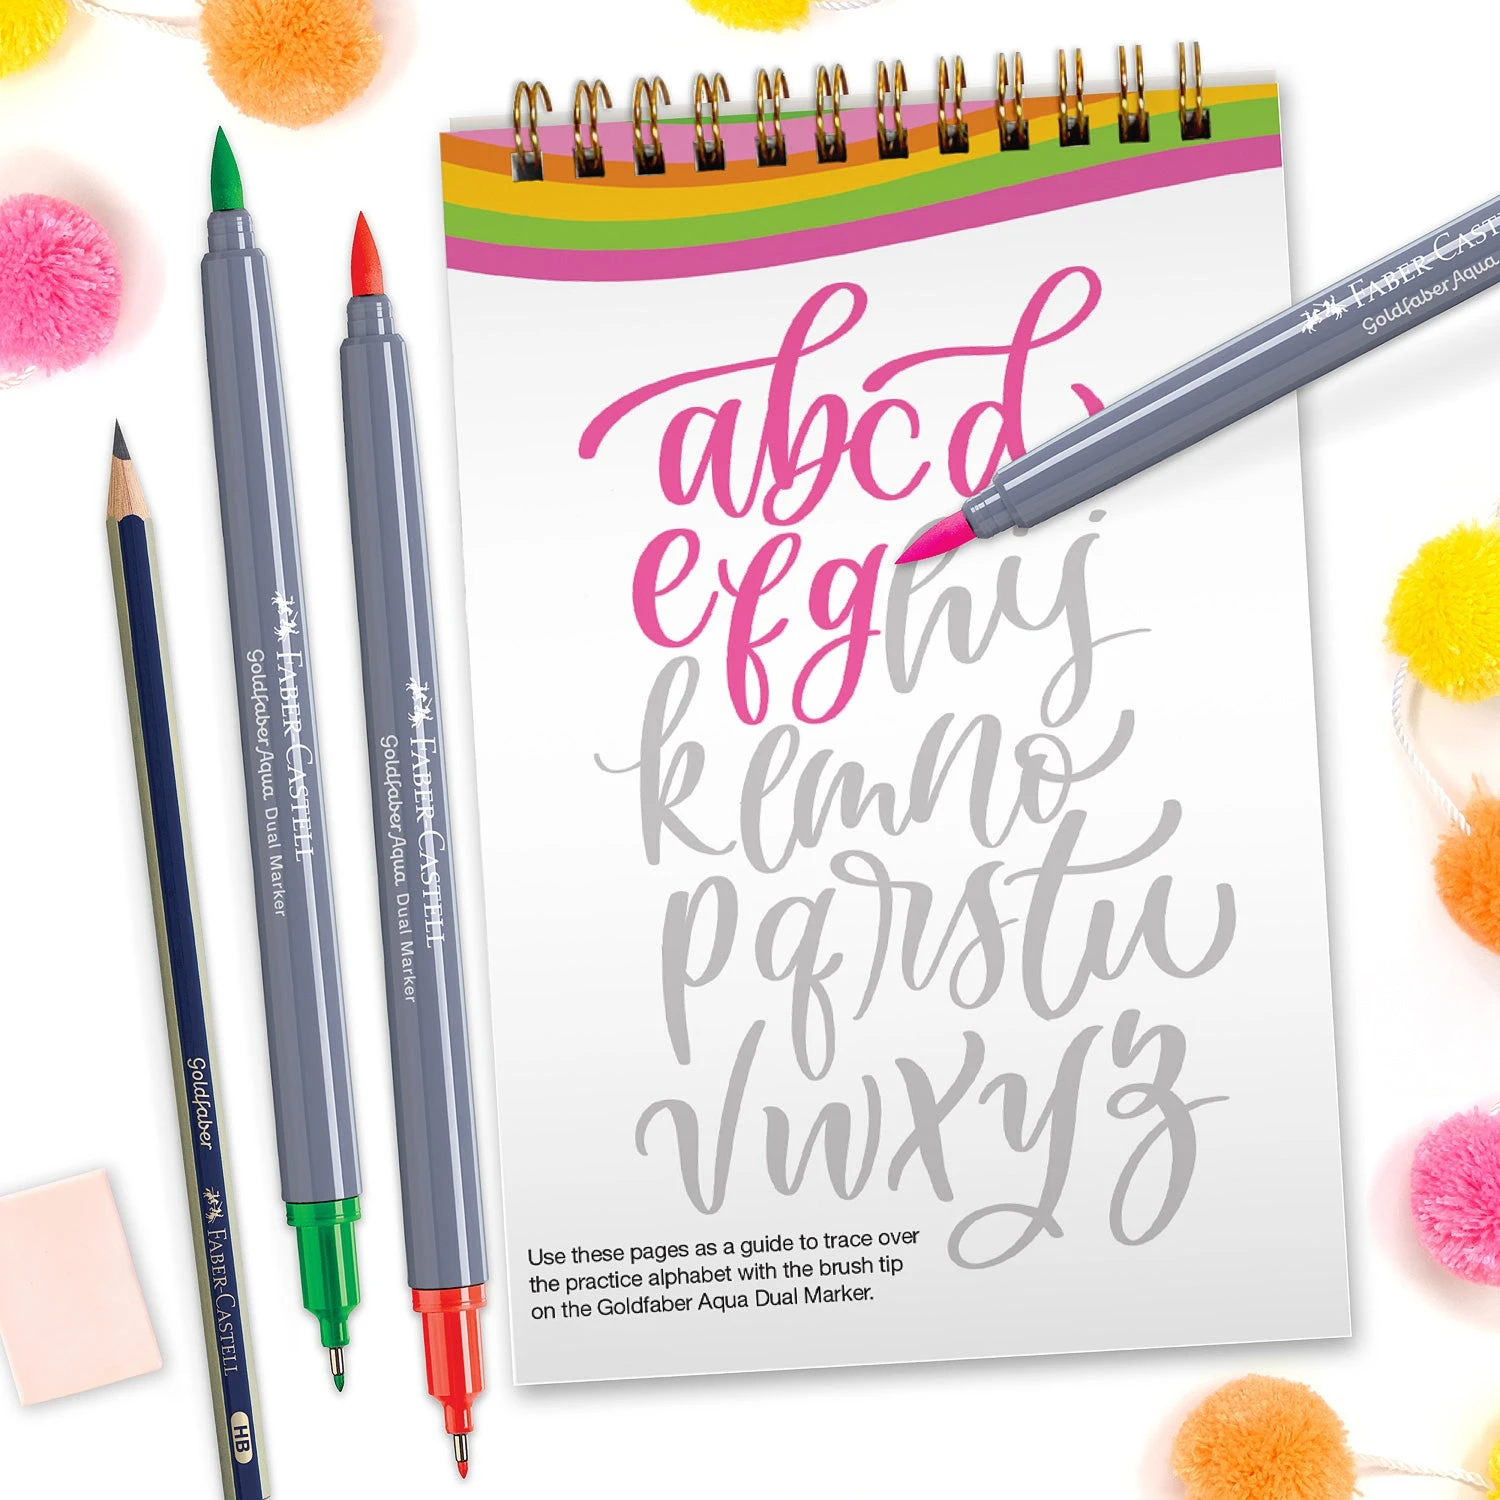 abcd
efghij
klmno
pqrstu
vwxyz
Use these pages as a guide to trace over
the practice alphabet with the brush tip
on the Goldfaber Aqua Dual Marker.
FABER-CASTELL
Goldfaber Aqua Dual Marker
FABER-CASTELL
Goldfaber Aqua Dual Marker
Goldfaber FABER-CASTELL HB
FABER-CAST
Goldfaber Aqua